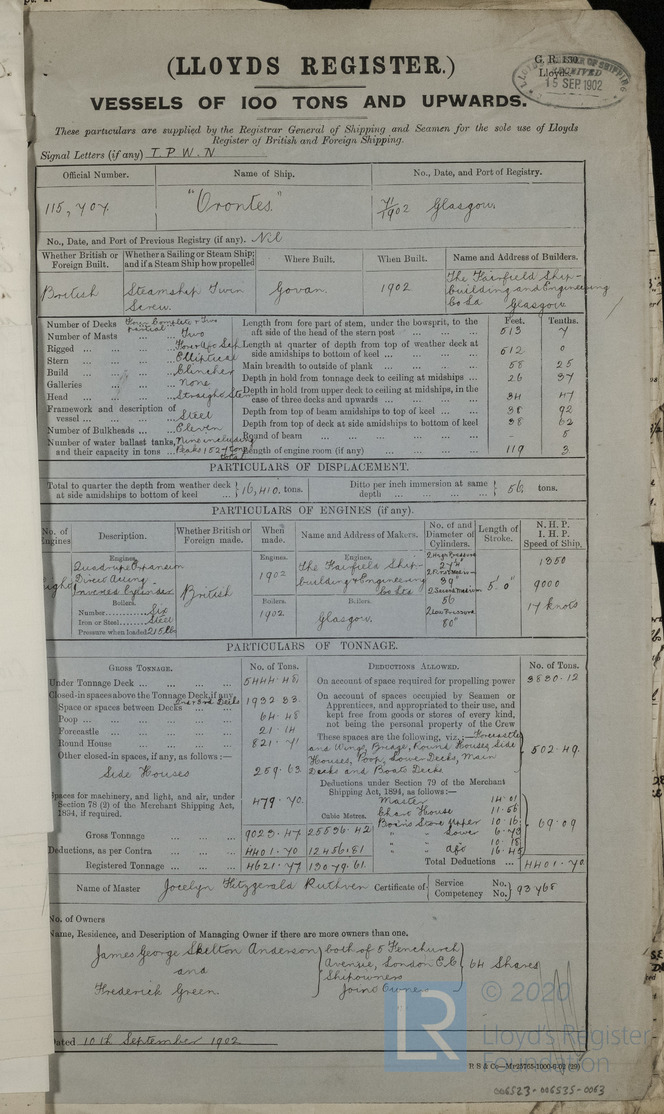 (LLOYDS REGISTER.)
G. R. 130
Lloyds
RECEIVED
15 SEP. 1902
VESSELS OF 100 TONS AND UPWARDS.
These particulars are supplied by the Registrar General of Shipping and Seamen for the sole use of Lloyds
Register of British and Foreign Shipping.
Signal Letters (if any) T. P. W. N
Official Number. Name of Ship. No., Date, and Port of Registry.
115,707. "Orontes." 71/1902 Glasgow.
No., Date, and Port of Previous Registry (if any). Nil
Whether British or Foreign Built. Whether a Sailing or Steam Ship; and if a Steam Ship how propelled Where Built. When Built. Name and Address of Builders.
British Steamship Twin Screw. Govan. 1902 The Fairfield Ship-building and Engineering Co Ld Glasgow
Feet. Tenths.
Number of Decks Four Complete & Two partial
Number of Masts Two
Rigged Fore & Aft Sch
Stern Elliptical
Build Clincher
Galleries None
Head Straight Stem
Framework and description of vessel Steel
Number of Bulkheads Eleven
Number of water ballast tanks, and their capacity in tons Nine including Peaks 1527 tons total
Length from fore part of stem, under the bowsprit, to the aft side of the head of the stern post 513 7
Length at quarter of depth from top of weather deck at side amidships to bottom of keel 512 0
Main breadth to outside of plank 58 25
Depth in hold from tonnage deck to ceiling at midships 26 37
Depth in hold from upper deck to ceiling at midships, in the case of three decks and upwards 34 47
Depth from top of beam amidships to top of keel 38 92
Depth from top of deck at side amidships to bottom of keel 38 62
Round of beam - 5
Length of engine room (if any) 119 3
PARTICULARS OF DISPLACEMENT.
Total to quarter the depth from weather deck at side amidships to bottom of keel 16,410. tons. Ditto per inch immersion at same depth 56 tons.
PARTICULARS OF ENGINES (if any).
No. of Engines Description. Whether British or Foreign made. When made. Name and Address of Makers. No. of and Diameter of Cylinders. Length of Stroke. N. H. P. I. H. P. Speed of Ship.
Engines. Engines. Engines.
Eight Quadruple Expansion Direct Acting Inverted Cylinder British 1902 The Fairfield Ship-building & Engineering Co Ltd
2 High Pressure 27½"
39"
2 Second Medium 56
2 Low Pressure 80"
5' 0"
1350
9000
17 knots
Boilers. Boilers. Boilers.
Number Six
Iron or Steel Steel
Pressure when loaded 215 lb
1902 Glasgow.
PARTICULARS OF TONNAGE.
GROSS TONNAGE. No. of Tons. DEDUCTIONS ALLOWED. No. of Tons.
Under Tonnage Deck 5444.48
Closed-in spaces above the Tonnage Deck, if any
Space or spaces between Decks 2nd & 3rd Decks 1932.83
Poop 64.48
Forecastle 21.14
Round House 821.71
Other closed-in spaces, if any, as follows:—
Side Houses 259.63
Spaces for machinery, and light, and air, under Section 78 (2) of the Merchant Shipping Act, 1894, if required. 479.70
Cubic Metres.
Gross Tonnage 9023.47 25536.42
Deductions, as per Contra 4401.70 12456.81
Registered Tonnage 4621.77 13079.61
On account of space required for propelling power 3830.12
On account of spaces occupied by Seamen or Apprentices, and appropriated to their use, and kept free from goods or stores of every kind, not being the personal property of the Crew
These spaces are the following, viz.:— Forecastle and Wing, Bridge, Round Houses, Side Houses, Poop, Lower Decks, Main Decks and Boat Decks 502.49
Deductions under Section 79 of the Merchant Shipping Act, 1894, as follows:—
Master 14.01
Chart House 11.66
Bo'sns Store Upper 10.16
" " Lower 6.73
" " 10.18
" " Aft 16.45
69.09
Total Deductions 4401.70
Name of Master Jocelyn Fitzgerald Ruthven Certificate of Service No. Competency No. 93468
No. of Owners
Name, Residence, and Description of Managing Owner if there are more owners than one.
James George Skelton Anderson and Frederick Green.
both of 5 Fenchurch Avenue, London E.C Shipowners Joint Owners
64 Shares
© 2020
LR
Lloyd's Register
Foundation
Dated 10th September 1902
R S & Co—Mr25765-1000-6-02 (29)
006523-006535-0063